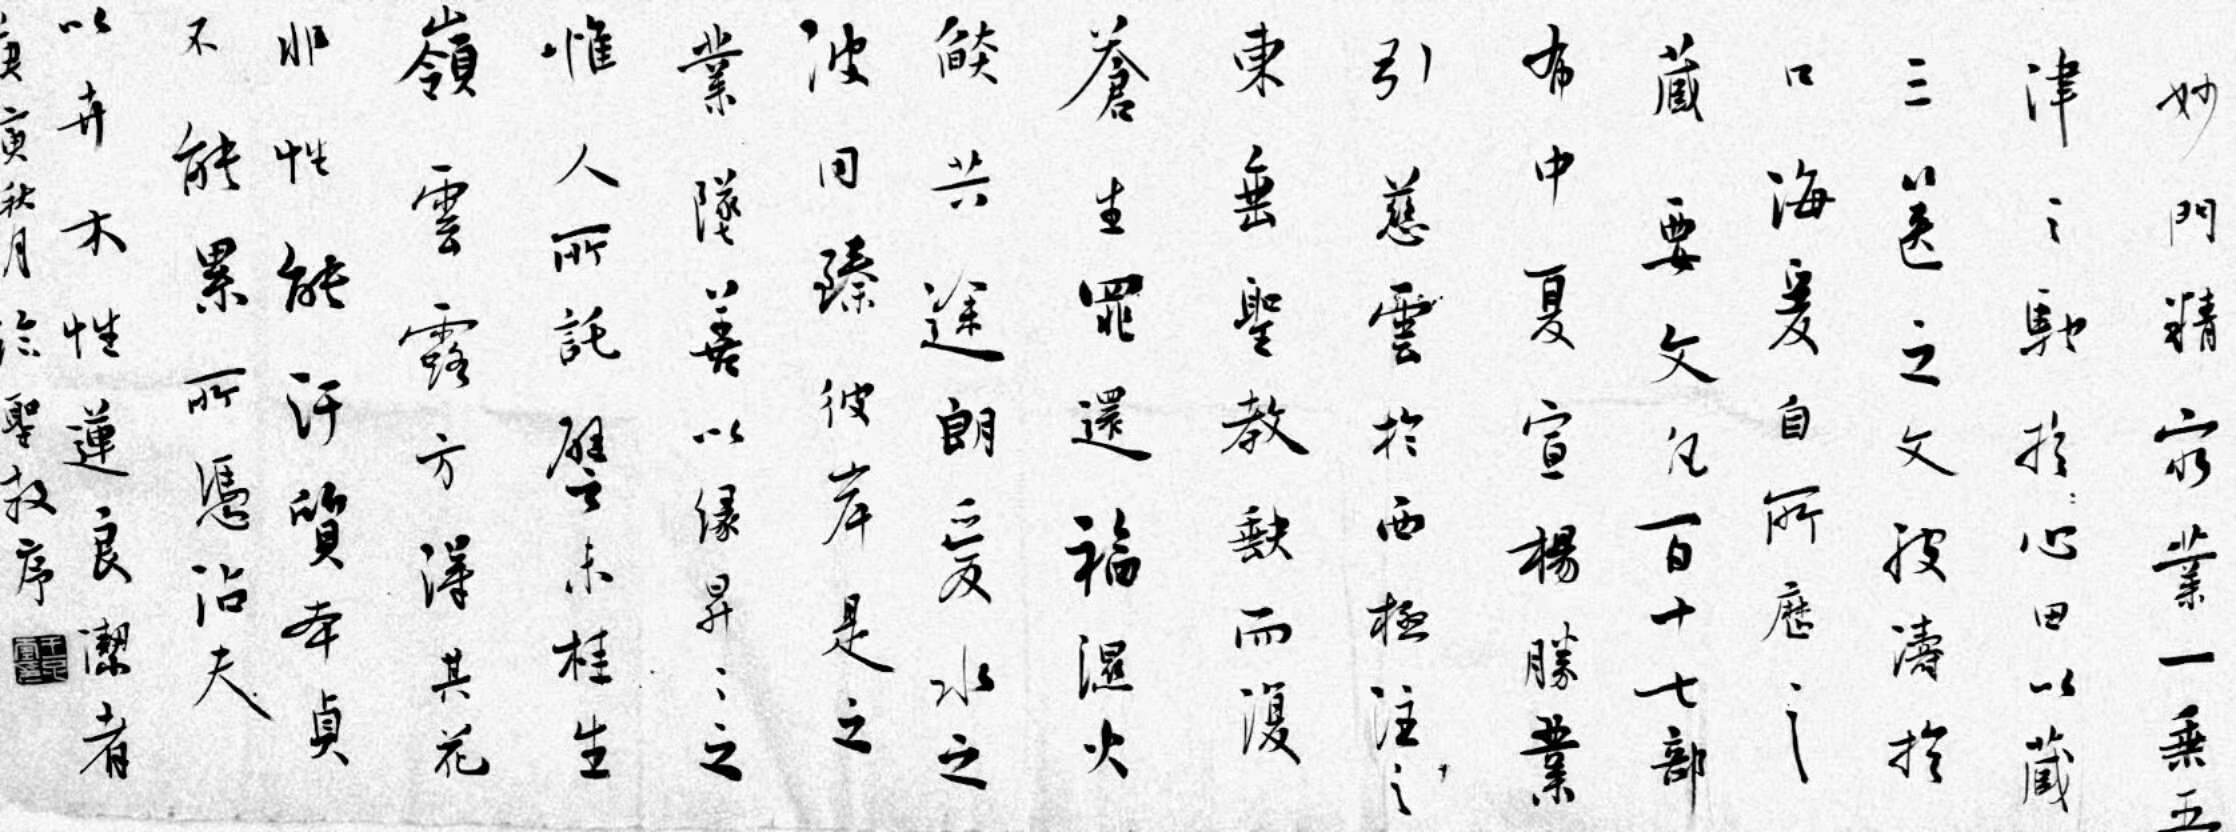 妙門精窮業一乗五
津之馳於心田以蔵
三篋之文文波濤於
口海爰自所歷之
蔵要文凡百十七部
布中夏宣楊勝業
引慈雲於西極注之
東垂聖教缺而復
蒼生罪還福濕火
燄共途朗愛水之
波同臻彼岸是之
業墜善以緣昇〻之
惟人所託譬之桂生
嶺雲露方得其花
非性能汙質本貞
不能累所憑沾夫
以卉木性蓮良潔者
庚寅秋月臨聖教序